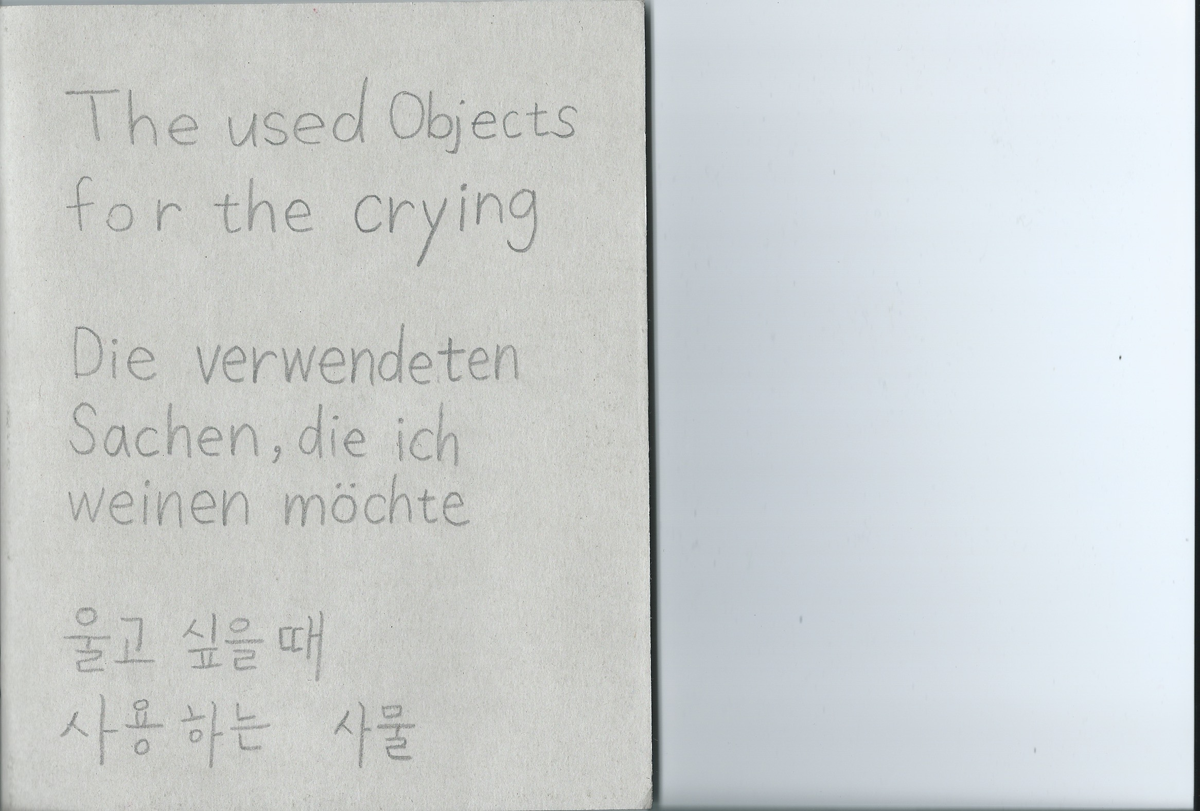 The used Objects
for the crying
Die verwendeten
Sachen, die ich
weinen möchte
울고 싶을 때
사용하는 사물